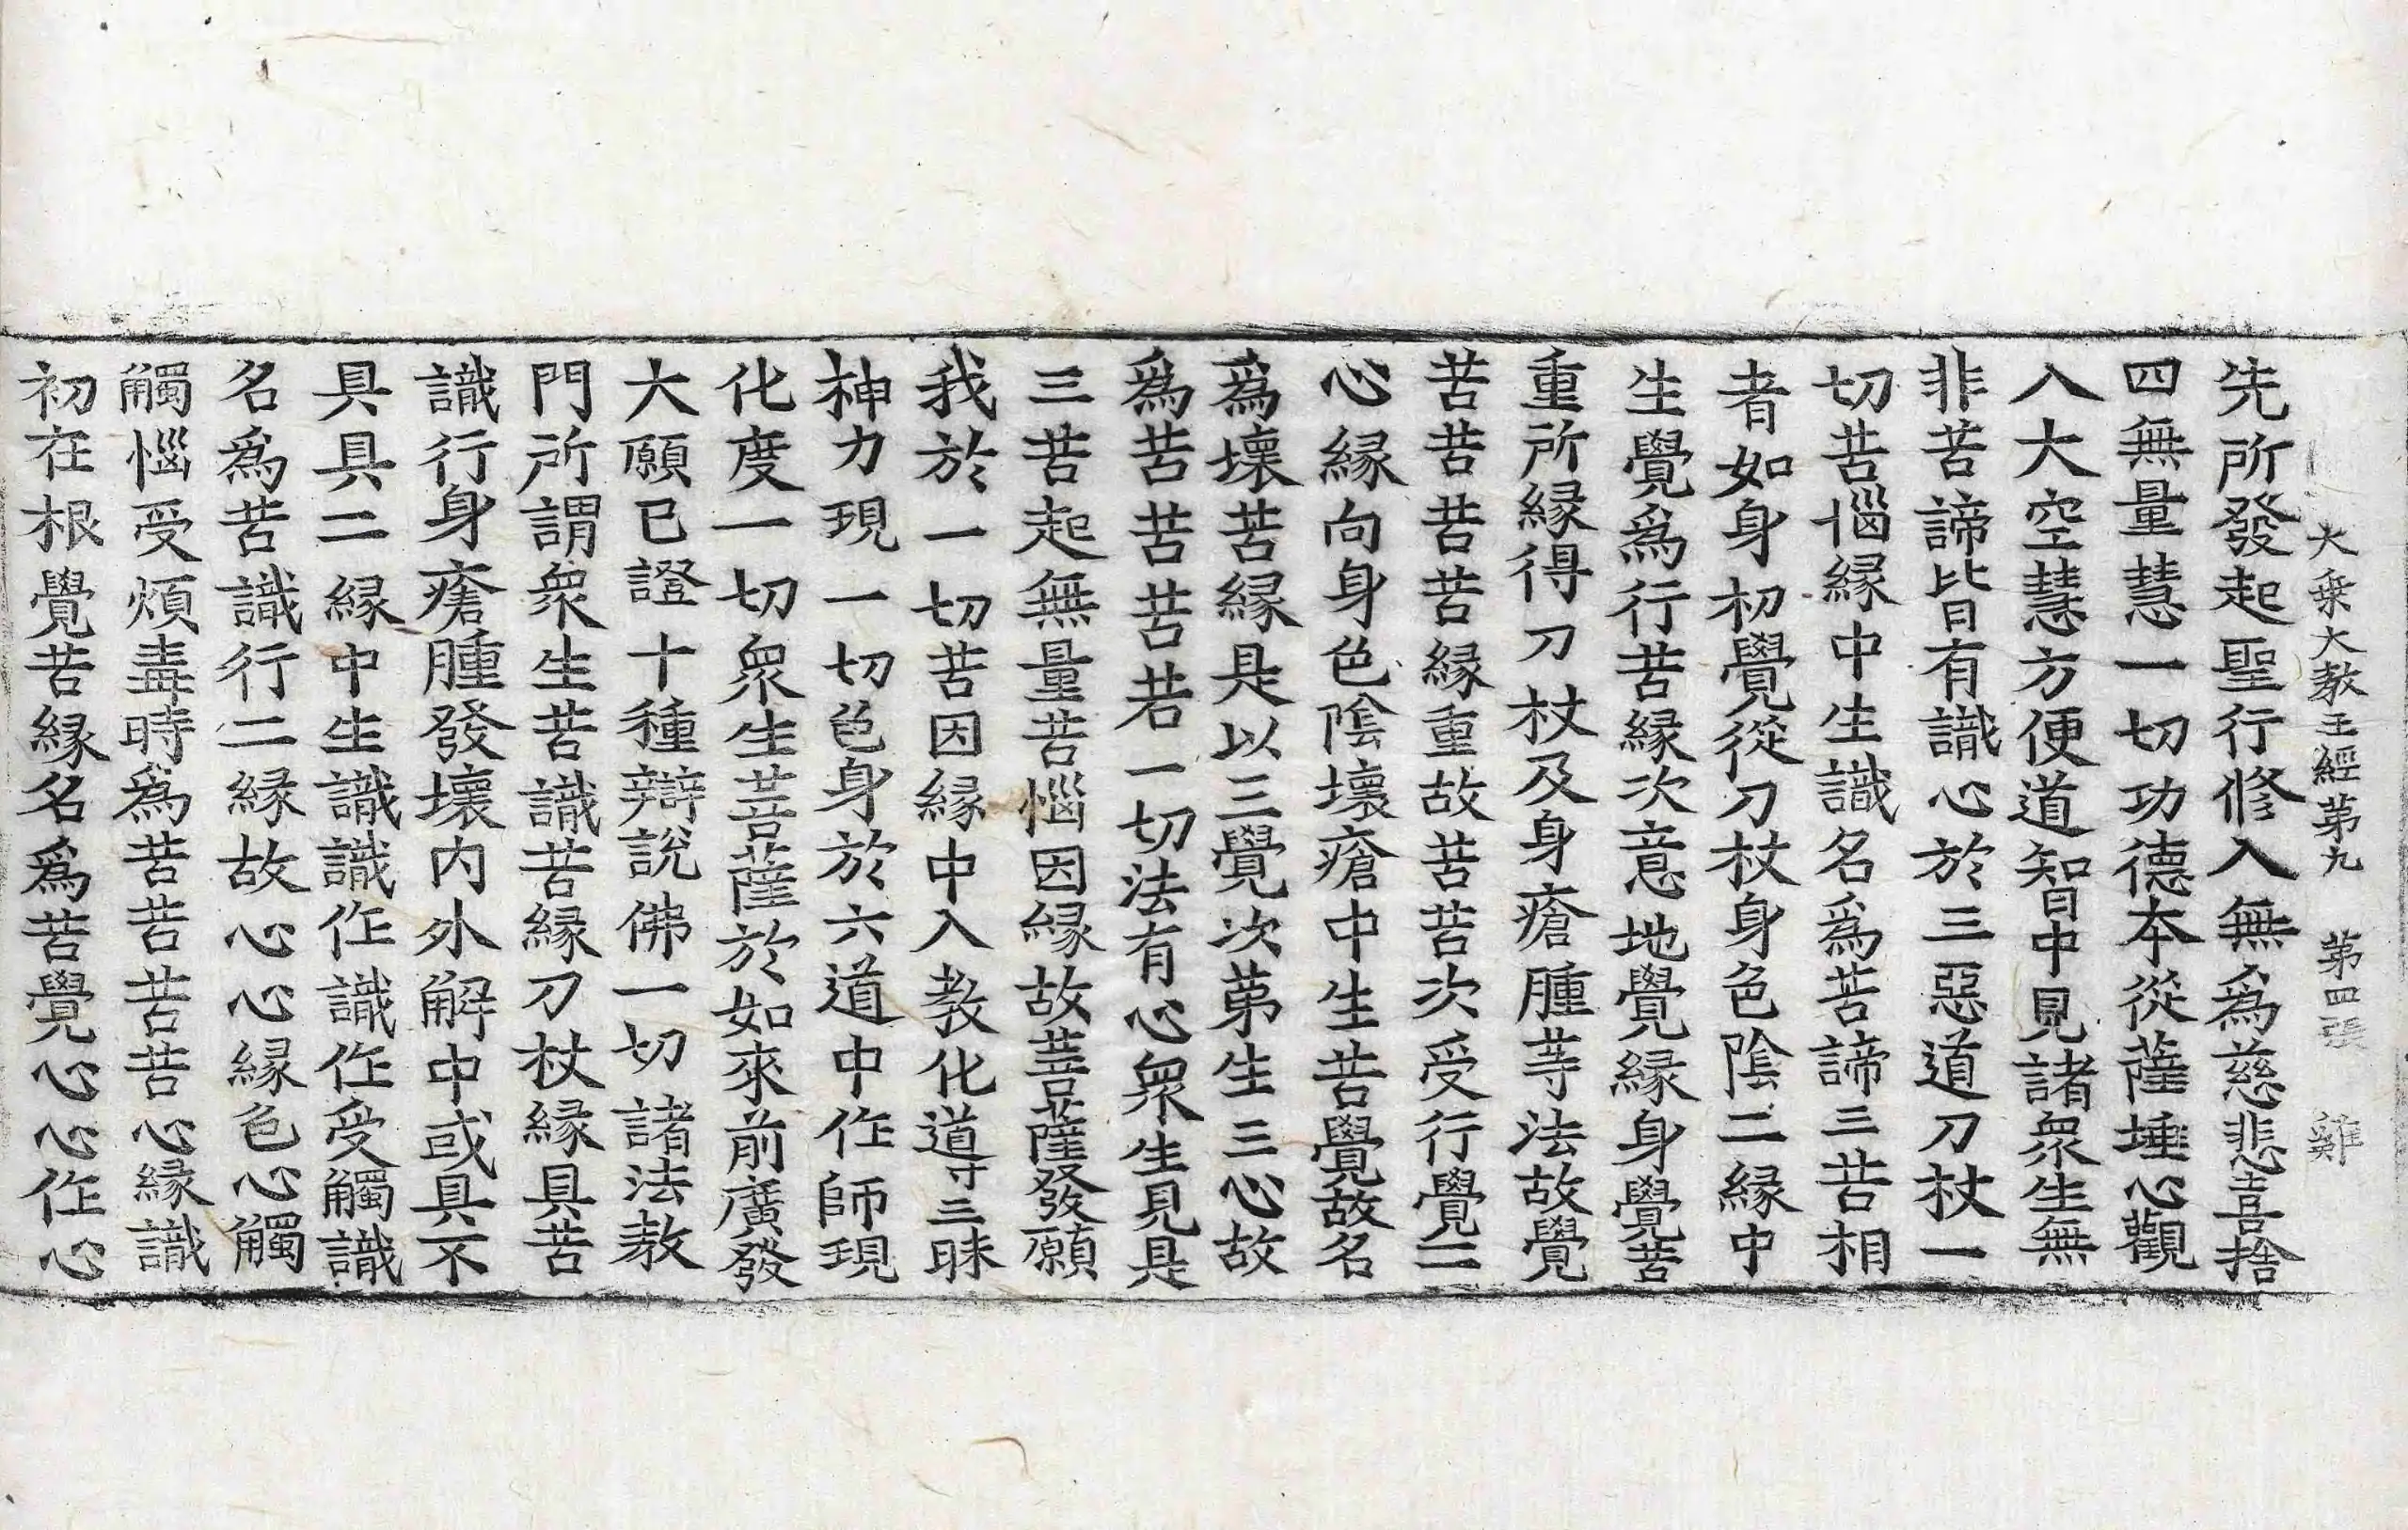 大乘大教王經第九 第四張 雞
先所發起聖行修入無爲慈悲喜捨
四無量慧一切功德本從薩埵心觀
八大空慧方便道智中見諸衆生無
非苦諦皆有識心於三惡道刀杖一
切苦惱縁中生識名爲苦諦三苦相
者如身初覺從刀杖身色陰二縁中
生覺爲行苦縁次意地覺縁身覺苦
重所縁得刀杖及身瘡腫等法故覺
苦苦苦苦縁重故苦苦次受行覺二
心縁向身色陰壞瘡中生苦覺故名
爲壞苦縁是以三覺次第生三心故
爲苦苦苦若一切法有心衆生見是
三苦起無量苦惱因縁故菩薩發願
我於一切苦因縁中入教化道寸三昧
神力現一切色身於六道中作師現
化度一切衆生菩薩於如來前廣發
大願已證十種辯說佛一切諸法教
門所謂衆生苦識苦縁刀杖縁具苦
識行身瘡腫發壞内外解中或具不
具具二縁中生識識作識作受觸識
名爲苦識行二縁故心心縁色心觸
觸惱受煩毒時爲苦苦苦苦心縁識
初在根覺苦縁名爲苦覺心心作心